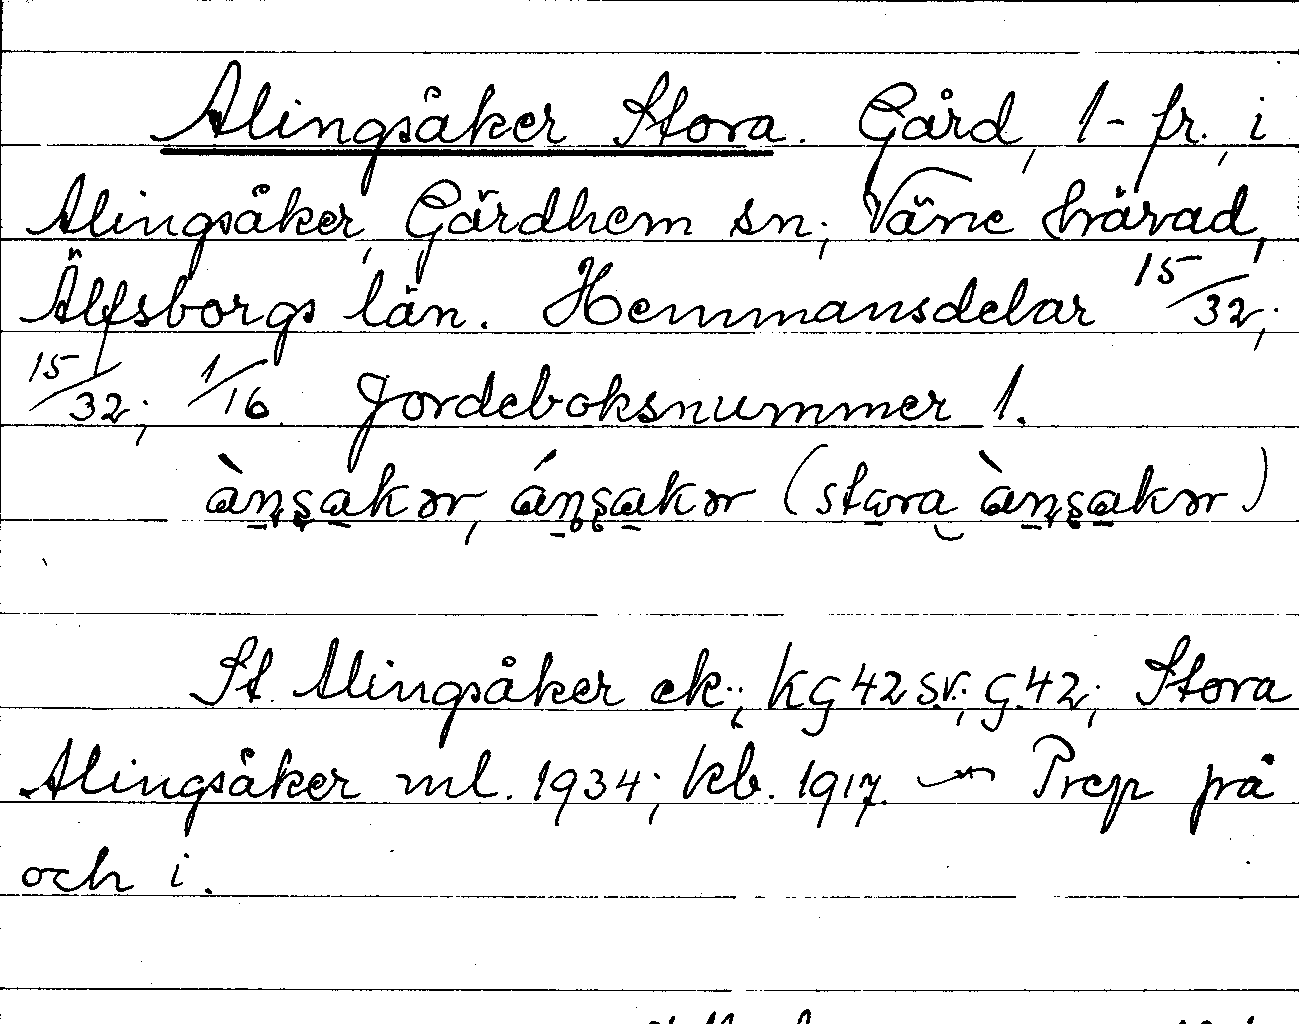 Alingsåker Stora. Gård, 1-fr., i
Alingsåker, Gärdhem sn; Väne härad,
Älfsborgs län. Hemmansdelar 15/32;
15/32; 1/16. Jordeboksnummer 1.
ànsakər, ánsakər (stora ànsakər)
St. Alingsåker ek.; KG 42 SV.; G.42; Stora
Alingsåker ml. 1934; kb. 1917. — Prep på
och i.